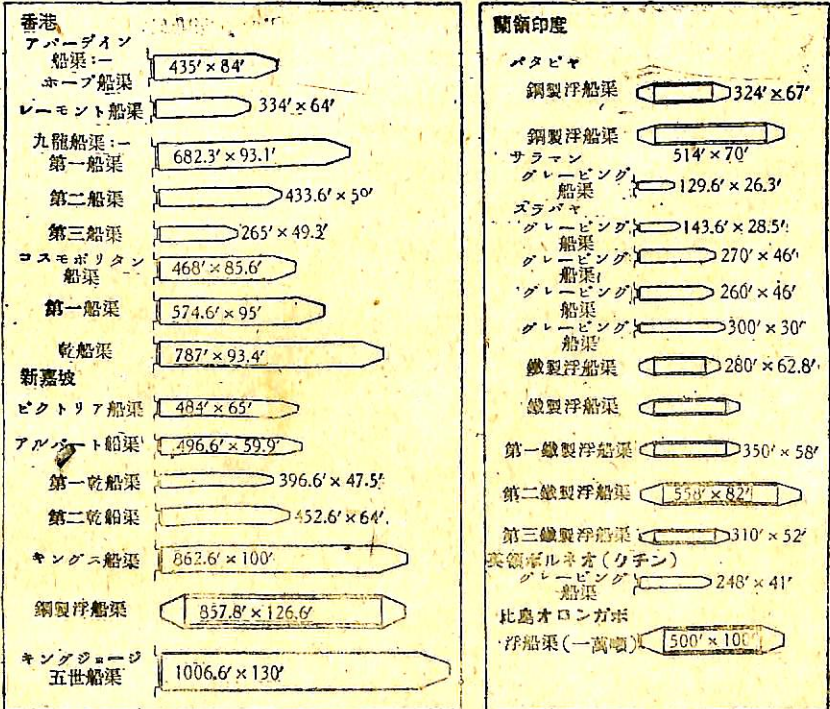 香港
アバーデイン
船渠:—
ホープ船渠 435′×84′
レーモント船渠 334′×64′
九龍船渠:—
第一船渠 682.3′×93.1′
第二船渠 433.6′×50′
第三船渠 265′×49.3′
コスモポリタン
船渠 468′×85.6′
第一船渠 574.6′×95′
乾船渠 787′×93.4′
新嘉坡
ビクトリア船渠 484′×65′
アルバート船渠 496.6′×59.9′
第一乾船渠 396.6′×47.5′
第二乾船渠 452.6′×64′
キングニ船渠 862.6′×100′
鋼製浮船渠 857.8′×126.6′
キングジョージ
五世船渠 1006.6′×130′
蘭領印度
バタビヤ
鋼製浮船渠 324′×67′
鋼製浮船渠
514′×70′
サラマン
グレービング
船渠 129.6′×26.3′
スラバヤ
グレービング
船渠 143.6′×28.5′
グレービング
船渠 270′×46′
グレービング
船渠 260′×46′
グレービング
船渠 300′×30′
鐵製浮船渠 280′×62.8′
鐵製浮船渠
第一鐵製浮船渠 350′×58′
第二鐵製浮船渠 558′×82′
第三鐵製浮船渠 310′×52′
英領ボルネオ(クチン)
グレービング
船渠 248′×41′
比島オロンガポ
浮船渠(一萬噸) 500′×100′